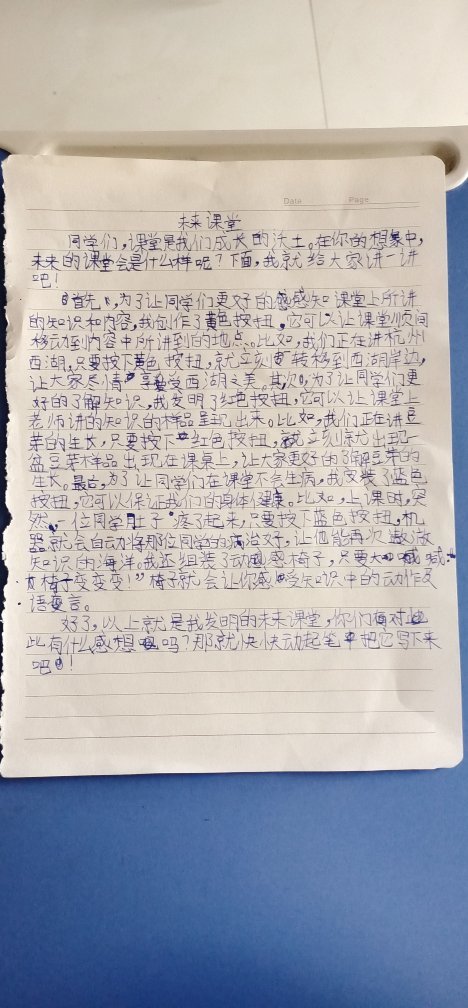 Date Page
未来课堂
同学们,课堂是我们成长的沃土。在你的想象中,
未来的课堂会是什么样呢?下面,我就给大家讲一讲
吧!
首先,为了让同学们更好的感知课堂上所讲
的知识和内容,我创作了黄色按扭,它可以让课堂顺间
移动到内容中所讲到的地点。比如,我们正在讲杭州
西湖,只要按下黄色按扭,就立刻转移到西湖岸边,
让大家尽情享受西湖之美。其次,为了让同学们更
好的了解知识,我发明了红色按扭,它可以让课堂上
老师讲的知识的样品呈现出来。比如,我们正在讲豆
芽的生长,只要按下红色按扭,就立刻出现一
盆豆芽样品出现在课桌上,让大家更好的了解豆芽的
生长。最后,为了让同学们在课堂不会生病,我安装了蓝色
按扭,它可以保证我们的身体健康。比如,上课时,突
然,一位同学肚子疼了起来,只要按下蓝色按扭,机
器就会自动将那位同学的病治好,让他能再次遨游
知识的海洋。我还组装了动感椅子,只要大喊:
“椅子变变变!”椅子就会让你感受知识中的动作及
语言。
好了,以上就是我发明的未来课堂,你们有对
此有什么感想吗?那就快快动起笔把它写下来
吧!